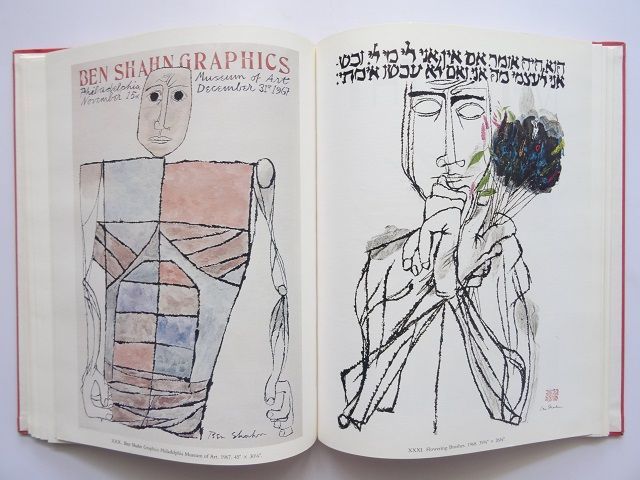 BEN SHAHN GRAPHICS
Philadelphia Museum of Art
November 15th December 31st 1967
Ben Shahn
XXX. Ben Shahn Graphics Philadelphia Museum of Art, 1967. 45" ×
הוא היה אומר אם אין אני לי מי לי וכש־
אני לעצמי מה אני ואם לא עכשו אימתי:
Ben Shahn
XXXI. Flowering Brushes. 1968.